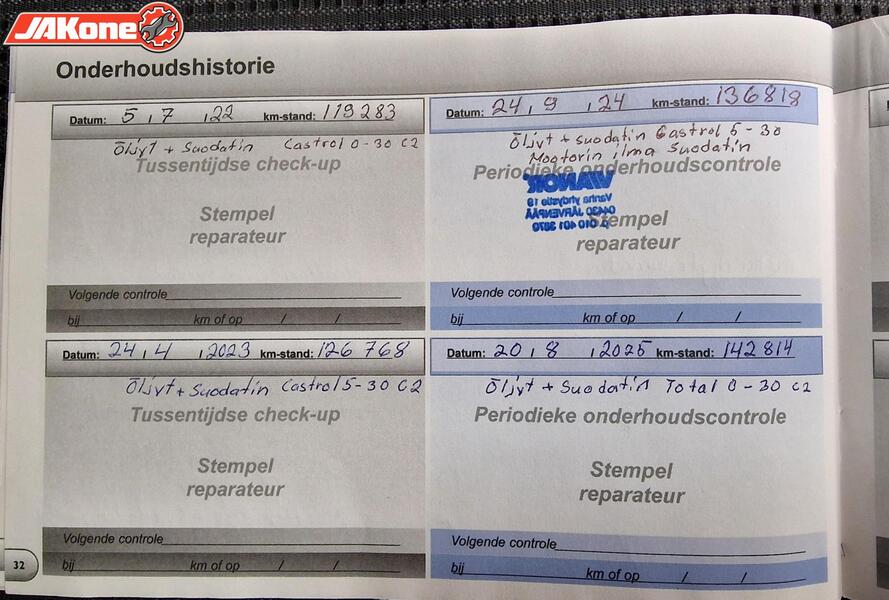 JAKone
Onderhoudshistorie
Datum: 5, 7, 22 km-stand: 119283
Öljyt + Suodatin Castrol 0-30 C2
Tussentijdse check-up
Stempel
reparateur
Volgende controle
bij km of op / /
Datum: 24, 9, 24 km-stand: 136818
Öljyt + suodatin Castrol 5-30
Moottorin ilma Suodatin
Periodieke onderhoudscontrole
WIANOR
Vanha yhdystie 19
04430 JÄRVENPÄÄ
010 401 3870
Stempel
reparateur
Volgende controle
bij km of op / /
Datum: 24, 4, 2023 km-stand: 126 768
Öljyt + Suodatin Castrol 5-30 C2
Tussentijdse check-up
Stempel
reparateur
Volgende controle
bij km of op / /
Datum: 20, 8, 2025 km-stand: 142814
Öljyt + Suodatin Total 0-30 C2
Periodieke onderhoudscontrole
Stempel
reparateur
Volgende controle
bij km of op / /
32